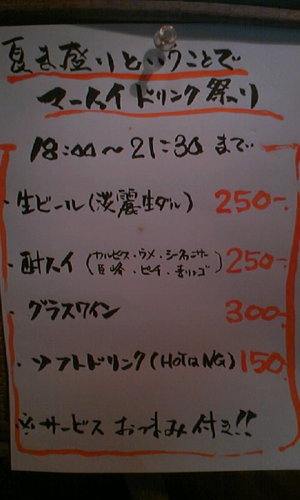 夏ま盛りということで
マースイドリンク祭り
18:00～21:30まで
・生ビール(淡麗生ダル) 250-
・酎スイ(カルピス・ウメ・シークァーサー 250-
巨峰・ピーチ・青リンゴ)
グラスワイン 300-
・ソフトドリンク(HOTはNG) 150-
※サービスおつまみ付き!!